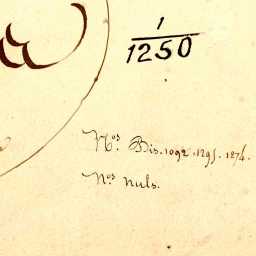 1
1250
Nos. Bis. 1092. 1291. 1274.
Nos nuls.